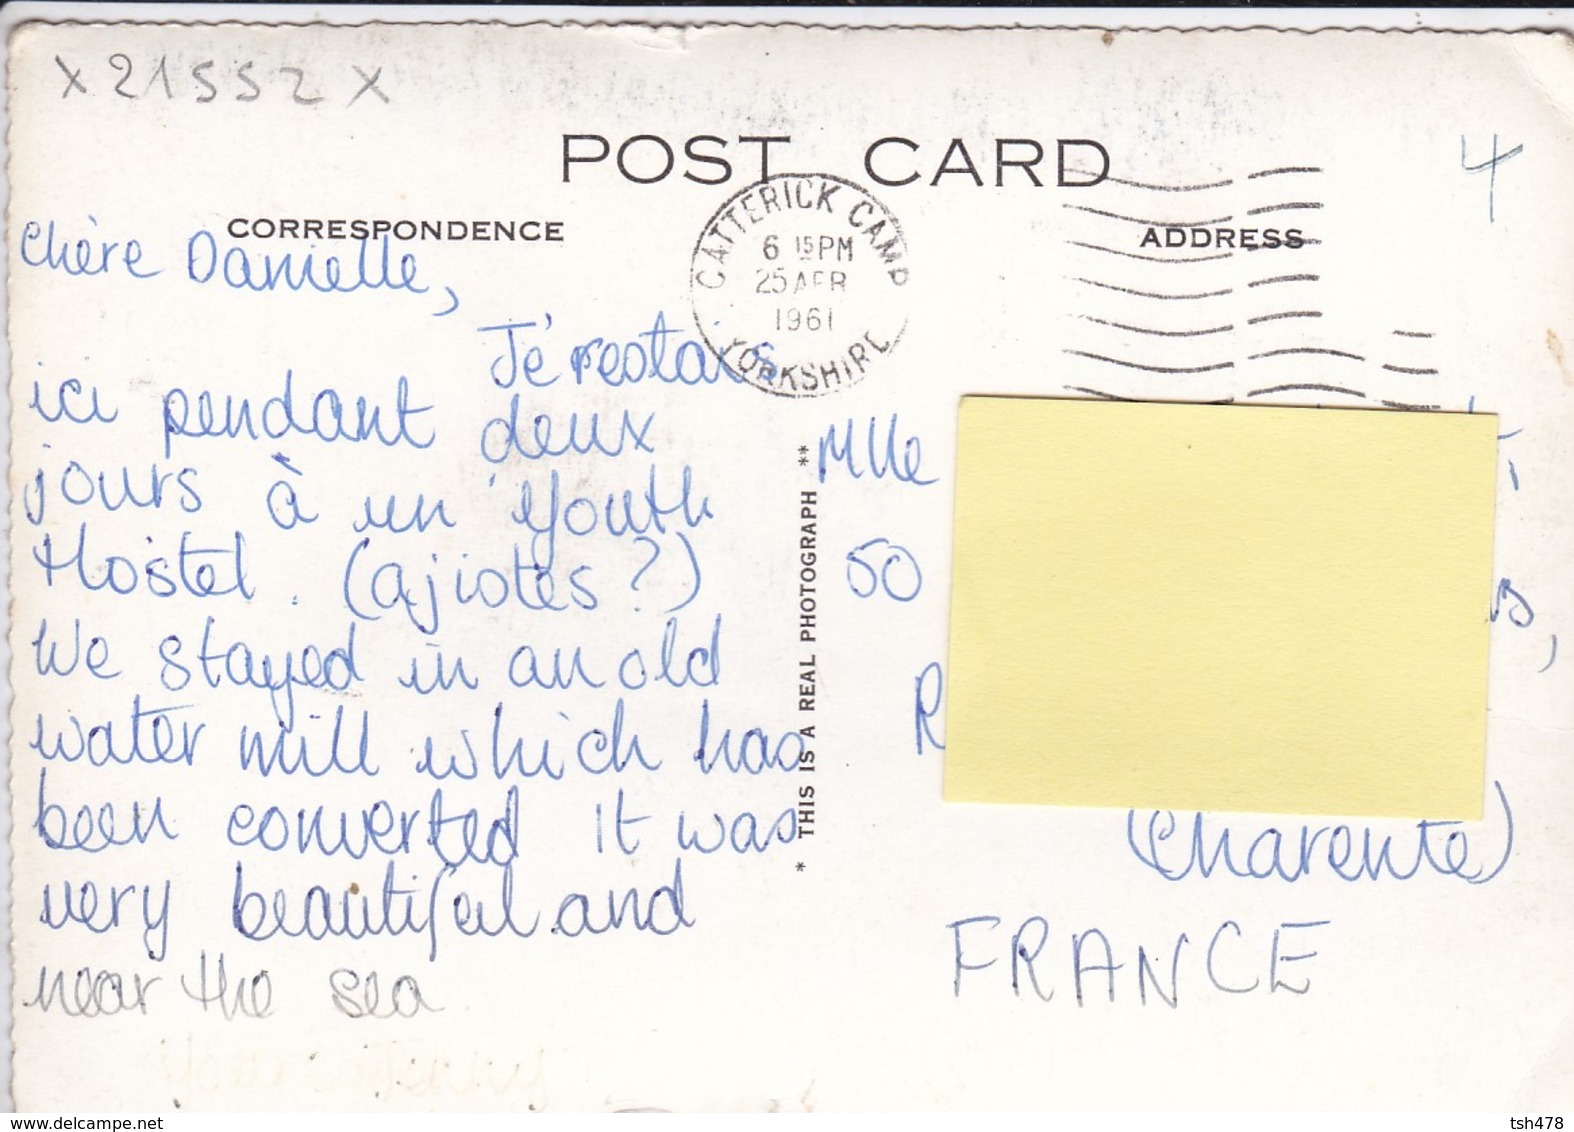 X 21552 X
POST CARD
4
CORRESPONDENCE
ADDRESS
CATTERICK CAMP
6 15 PM
25 APR
1961
YORKSHIRE
Chère Danielle,
Jé restais
ici pendant deux
jours à un Youth
Hostel. (ajiotes?)
We stayed in an old
water mill which has
been converted it was
very beautiful and
near the sea
* THIS IS A REAL PHOTOGRAPH **
Mlle
50
R
(Charente)
FRANCE
delcampe.net
tsh478